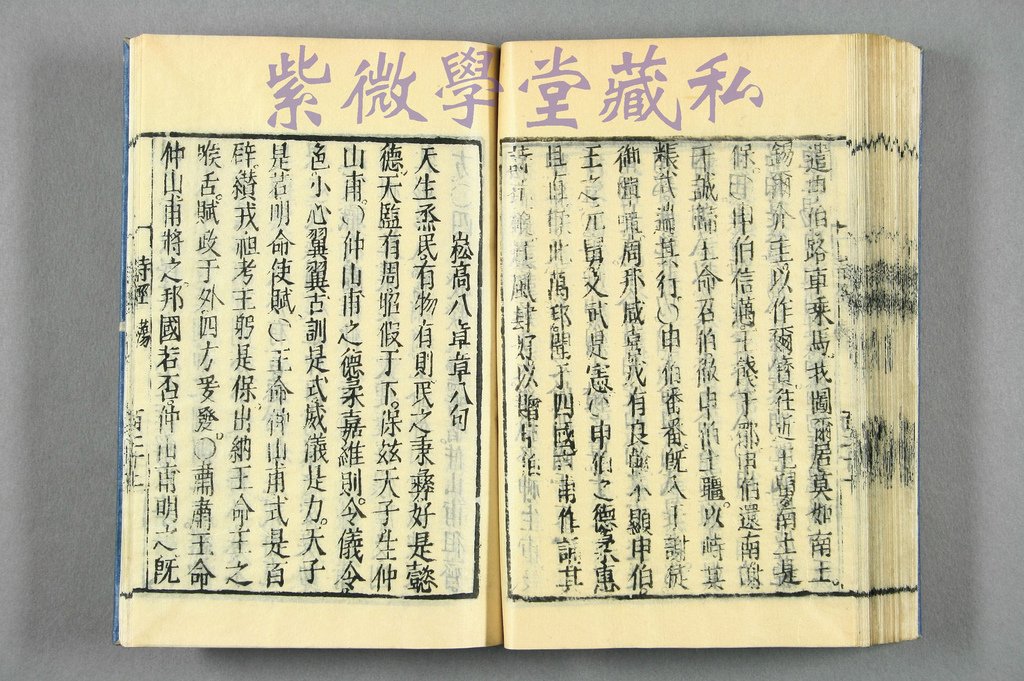 紫微學堂藏私
遣申伯路車乘馬我圖爾居莫如南土
錫爾介圭以作爾寶往近王舅南土是
保○申伯信邁王餞于郿申伯還南謝
于誠歸王命召伯徹申伯土疆以峙其
粻式遄其行○申伯番番既入于謝徒
御嘽嘽周邦咸喜戎有良翰不顯申伯
王之元舅文武是憲○申伯之德柔惠
且直揉此萬邦聞于四國吉甫作誦其
詩孔碩其風肆好以贈申伯
崧高八章章八句
天生烝民有物有則民之秉彝好是懿
德。天監有周昭假于下保茲天子生仲
山甫○仲山甫之德柔嘉維則。令儀令
色小心翼翼古訓是式威儀是力。天子
是若明命使賦○王命仲山甫式是百
辟。纘戎祖考王躬是保出納王命王之
喉舌。賦政于外四方爰發○肅肅王命
仲山甫將之邦國若否仲山甫明之既
詩經 蕩